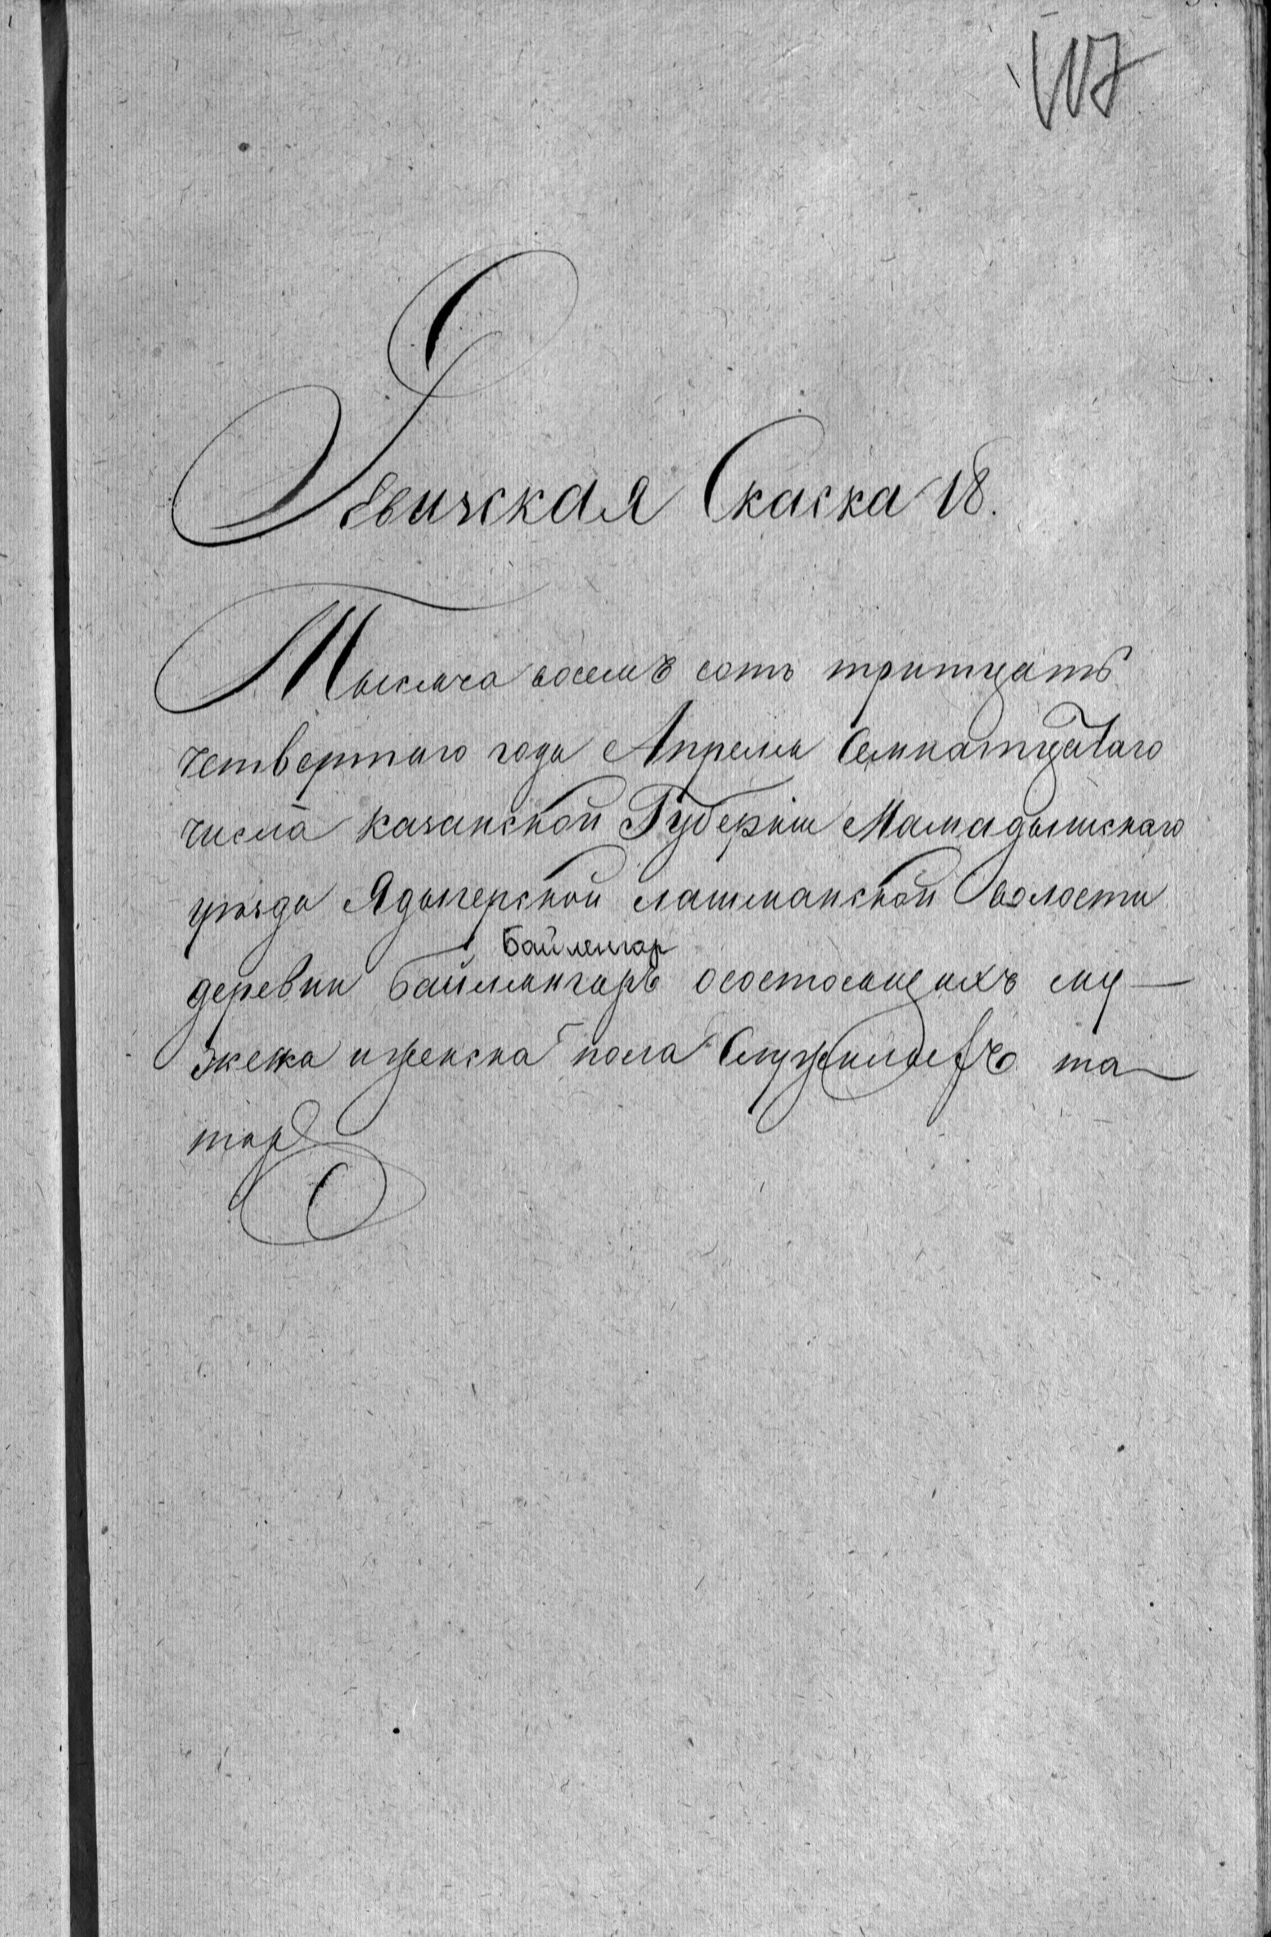 117
Ревичская Скаска 18.
Тысяча восемъ сотъ тритцать
четвертаго года Апреля Семнатцатаго
числа казанской Губернiи Мамадышскаго
уезда Ядыгерской лашманской волости
Байленгар
деревни байлянгаръ осостоящихъ му-
жеска иженска пола Служилыхъ та-
таръ